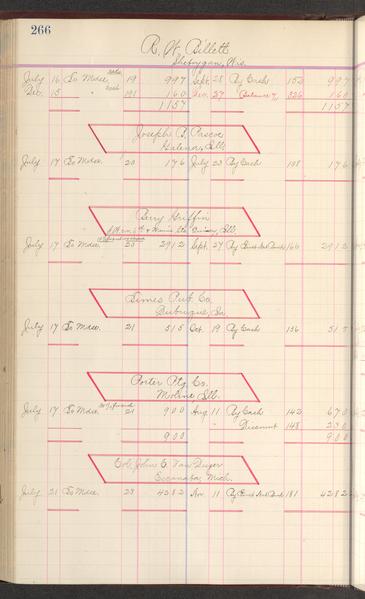 266
R. W. Billett
Sheboygan, Wis.
July 16 To Mdse. 19 997 Sept. 28 By Cash 152 997
Dec. 15 " 191 160 Dec. 27 " Balance 326 160
1157 1157
Joseph P. Pascoe
Galena, Ill.
July 17 To Mdse. 20 176 July 23 By Cash 108 176
Berry Griffin
Quincy, Ill.
July 17 To Mdse. 20 2912 Sept. 27 By 160 2912
Times Pub. Co.
Dubuque, Ia.
July 17 To Mdse. 21 515 Oct. 19 By Cash 156 515
Porter Ptg. Co.
Moline Ill.
July 17 To Mdse. 21 900 Aug 11 By Cash 142 670
Discount 148 230
900 900
Col. John E. Van Duyer
Escanaba, Mich.
July 21 To Mdse. 23 4282 Nov. 11 By 181 4282